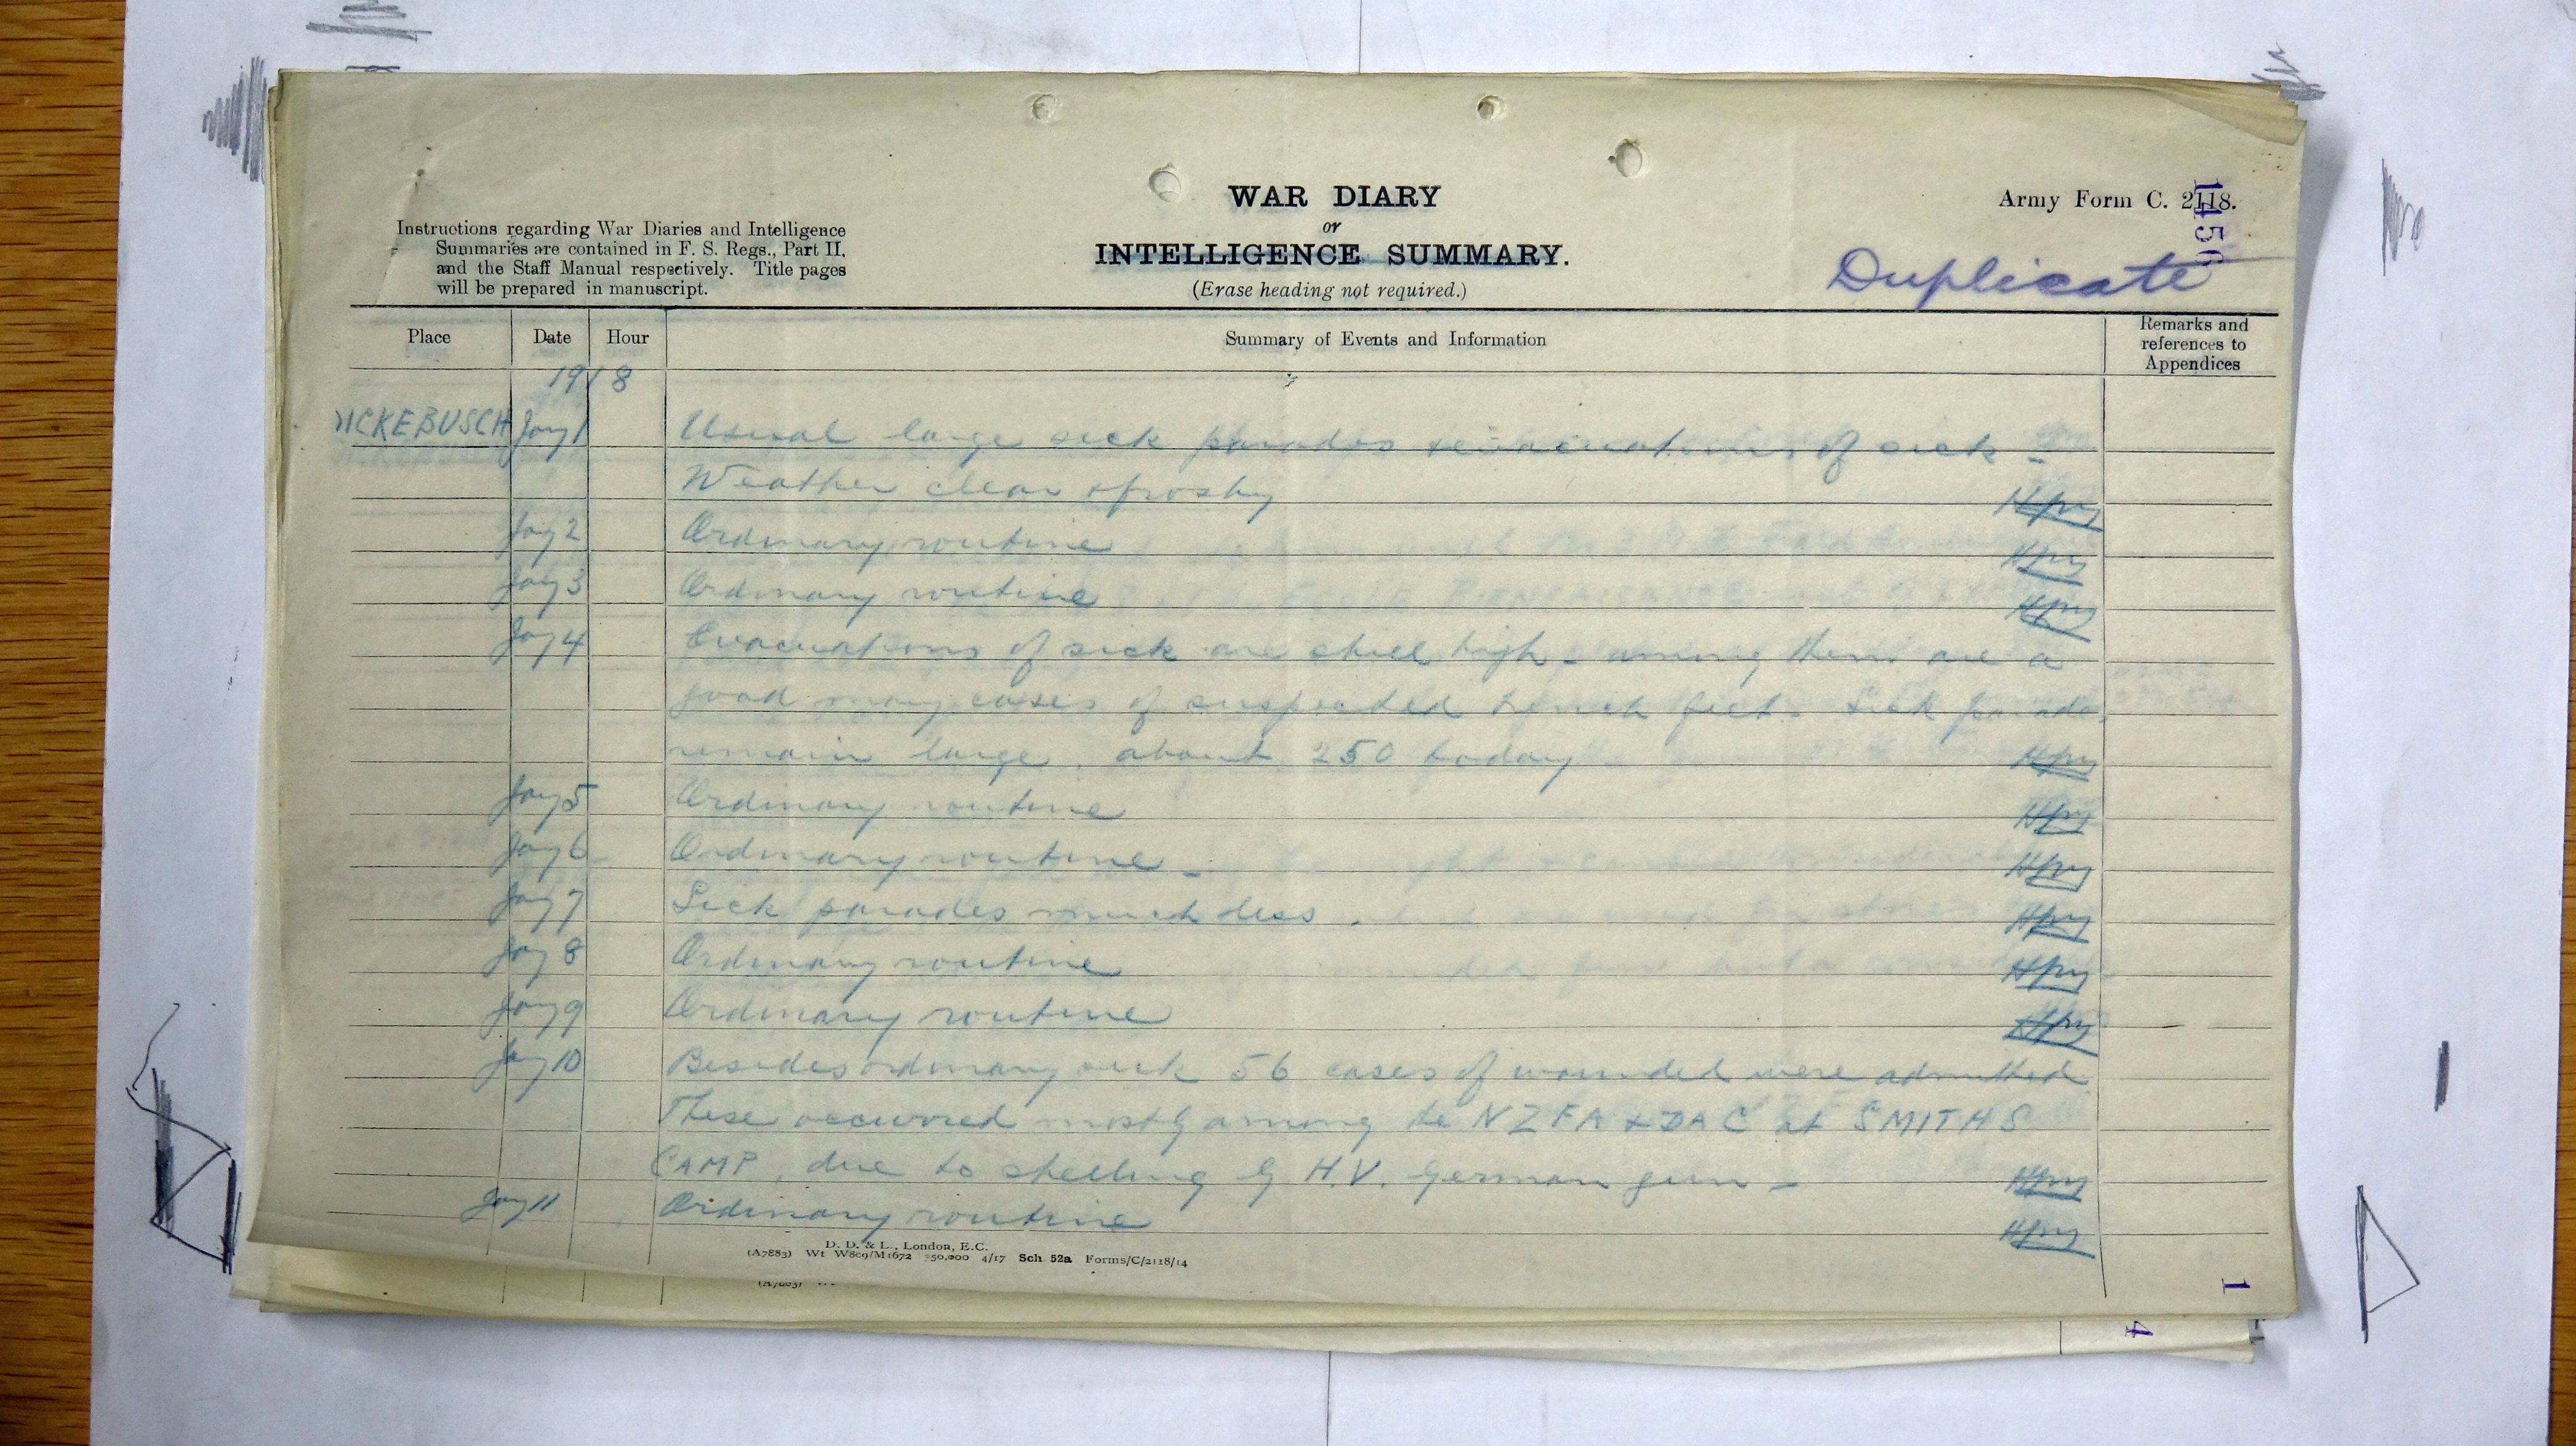 WAR DIARY
or
INTELLIGENCE SUMMARY.
(Erase heading not required.)
Army Form C. 2118.
1456
Duplicate
Instructions regarding War Diaries and Intelligence
Summaries are contained in F. S. Regs., Part II,
and the Staff Manual respectively. Title pages
will be prepared in manuscript.
Place Date Hour Summary of Events and Information Remarks and references to Appendices
1918
ICKEBUSCH Jany 1 Usual large sick parades & evacuations of sick -
Weather clear & frosty
Jany 2 Ordinary routine
Jany 3 Ordinary routine
Jany 4 Evacuations of sick are still high - among them are a
good many cases of suspected trench feet. Sick parades
remain large, about 250 today
Jany 5 Ordinary routine
Jany 6 Ordinary routine -
Jany 7 Sick parades much less.
Jany 8 Ordinary routine
Jany 9 Ordinary routine
Jany 10 Besides ordinary sick 56 cases of wounded were admitted
These occurred mostly among the NZFA & DAC at SMITHS
CAMP, due to shelling by H.V. German gun -
Jany 11 Ordinary routine
D. D. & L., London, E.C.
(A7883) Wt W809/M1672 350,000 4/17 Sch. 52a Forms/C/2118/14
1
4